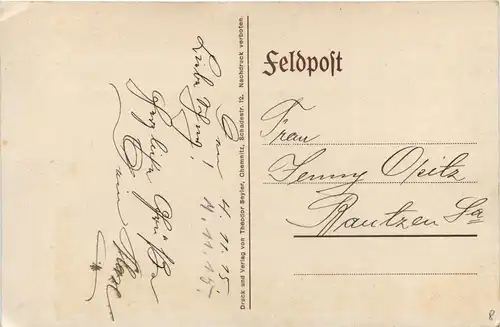 Feldpost
Frau
Jenny Opitz
Bautzen Sa
4.11.15.
Liebe Jenny!
Herzliche Grüße
Dein
Druck und Verlag von Theodor Seyler, Chemnitz, Schadestr. 12. Nachdruck verboten.
8